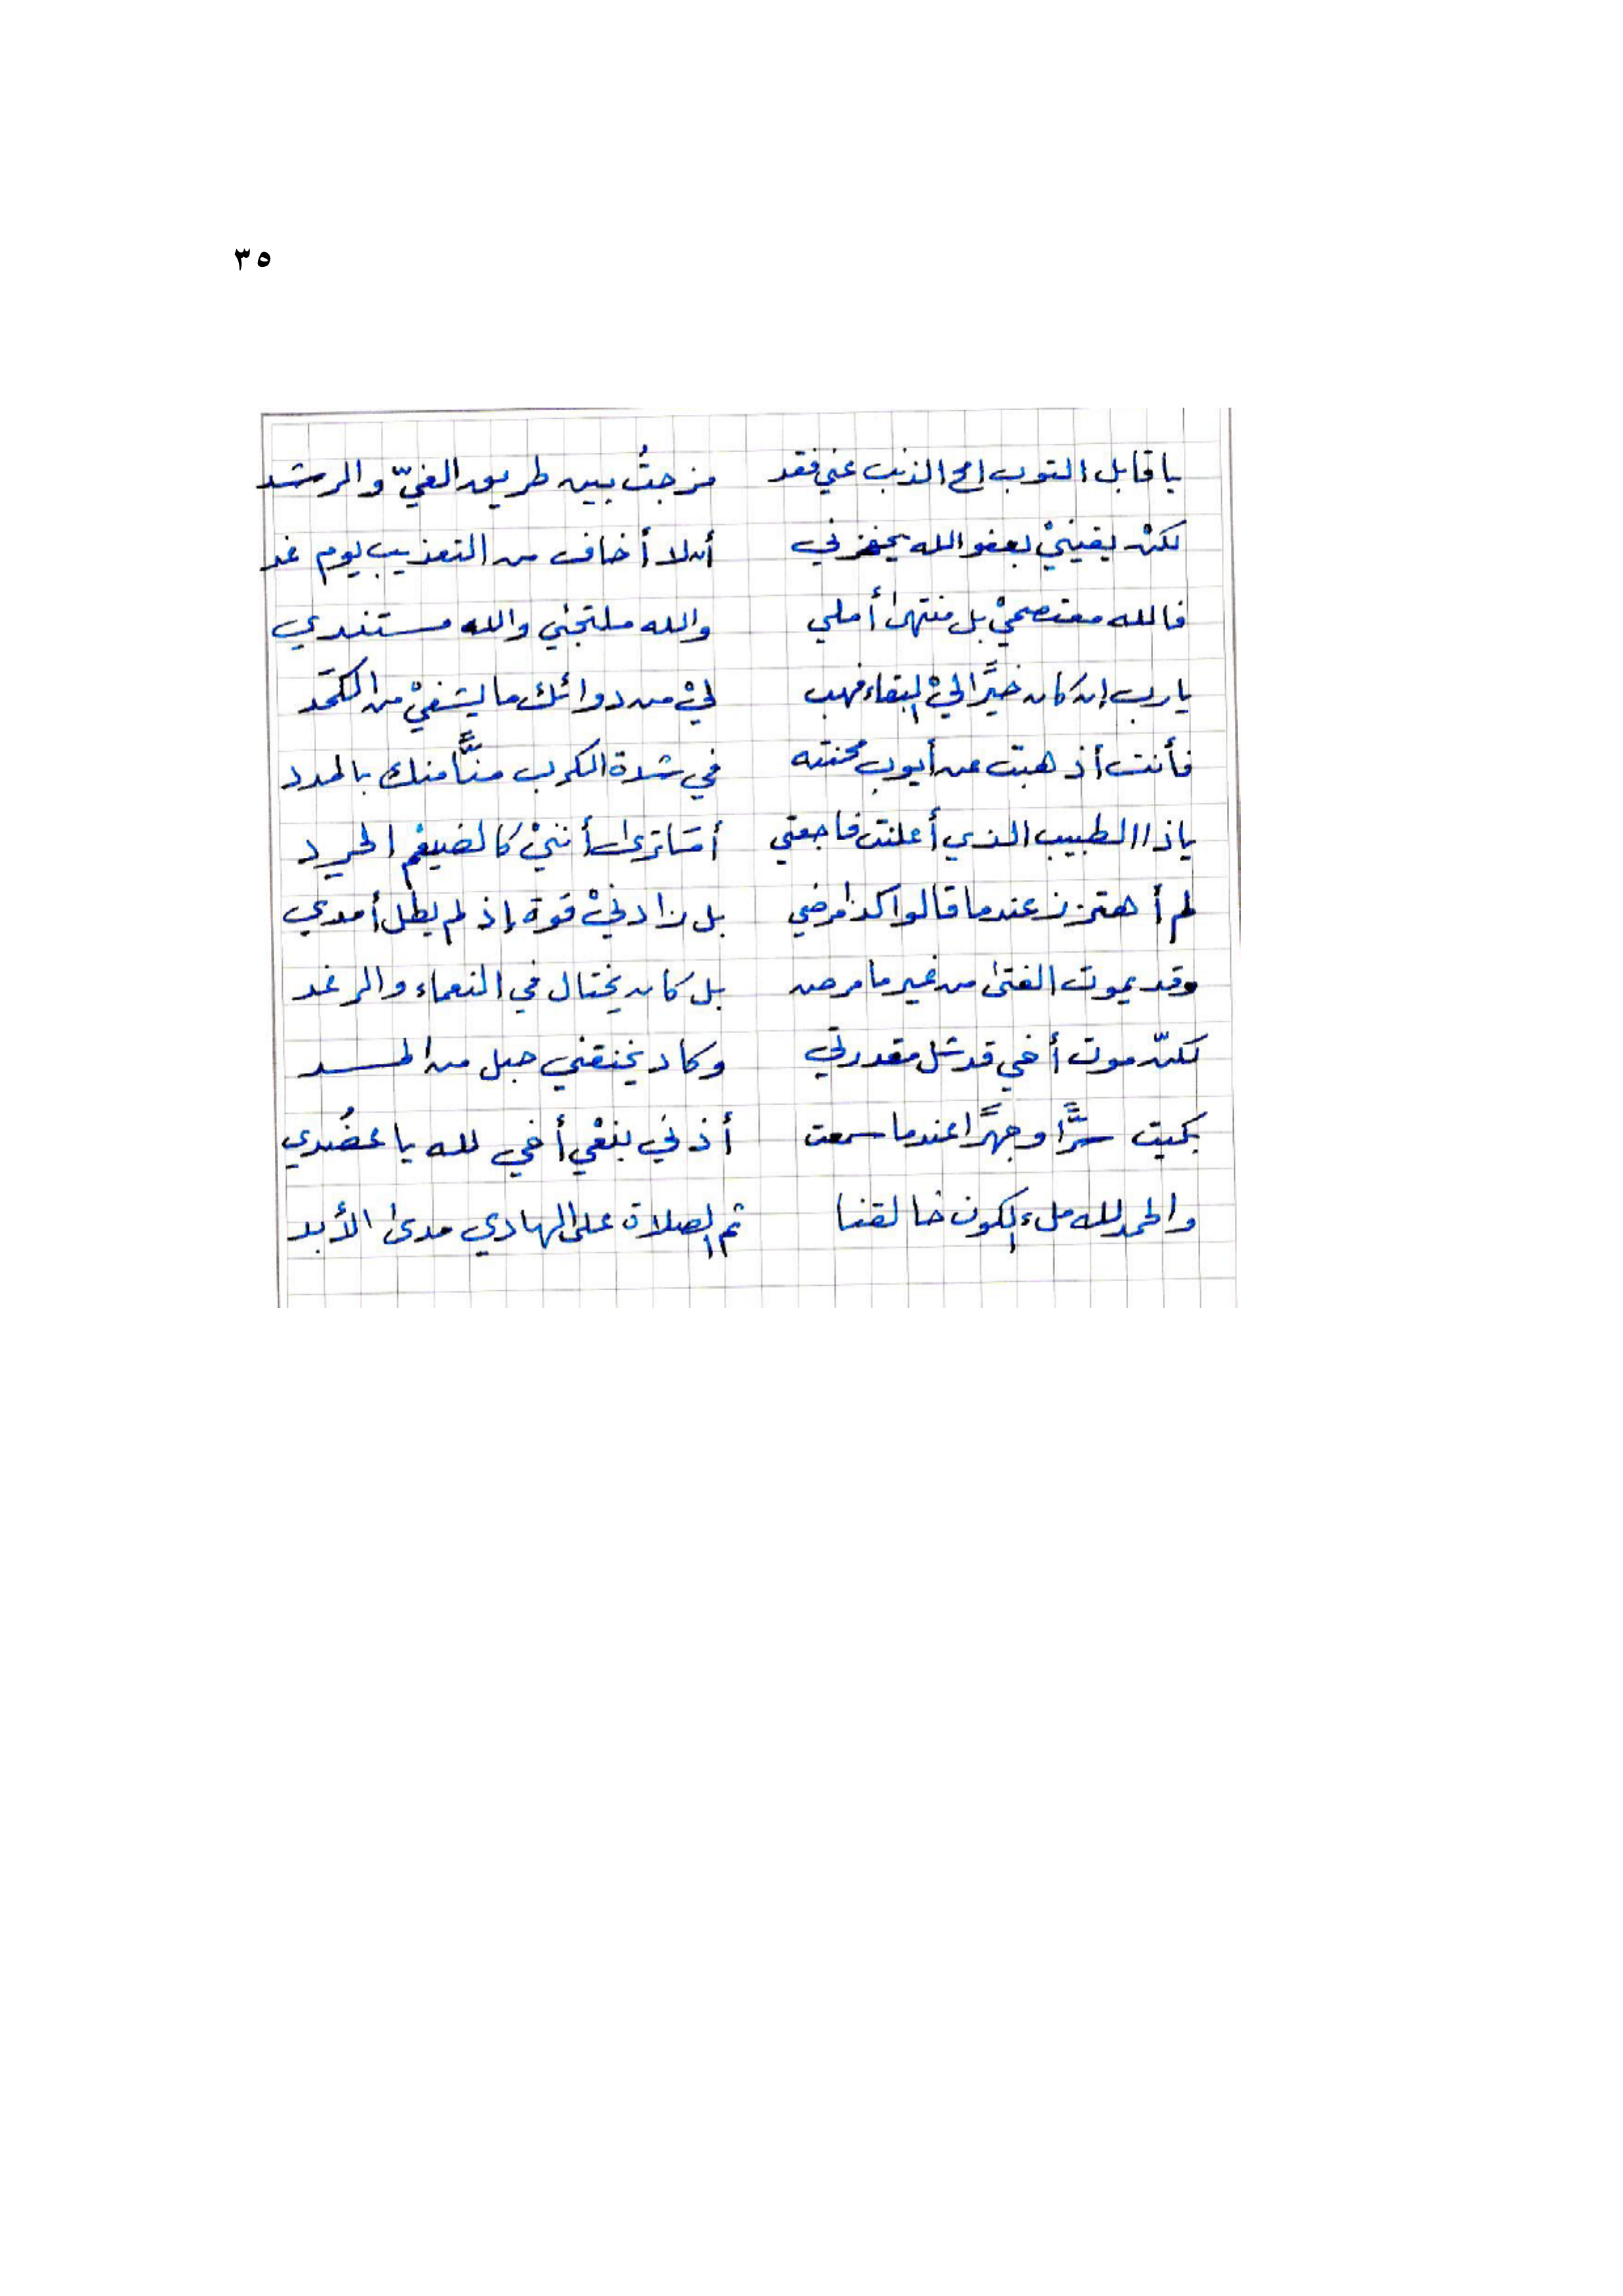 ٣٥
يا قابل التوب امح الذنب عني فقد مزجتُ بين طريق الغيّ والرشد
لكنْ يقينيْ بعفو الله يحفزني أن لا أخاف من التعذيب يوم غد
فالله معتصميْ بل منتهى أملي والله ملتجئي والله مستندي
يا رب إن كان خيرًا ليْ البقاء فهب ليْ من دوائك ما يشفيْ من الكَمَد
فأنت أذهبت عن أيوب محنته في شدة الكرب منًّا منك بالمدد
يا ذا الطبيب الذي أعلنت فاجعتي أمَا ترى أننيْ كالضيغم الحرد
لم أهتزز عندما قالوا كذا مرضي بل زادنيْ قوة إذ لم يطل أمدي
وقد يموت الفتى من غير ما مرض بل كان يختال في النعماء والرغد
لكنّ موت أخي قد شل مقدرتي وكاد يخنقني حبل من المسد
بكيت سرًّا وجهرًا عندما سمعت أذني بنعْي أخي لله يا عضُدي
والحمد لله ملء الكون خالقنا ثم الصلاة على الهادي مدى الأبد